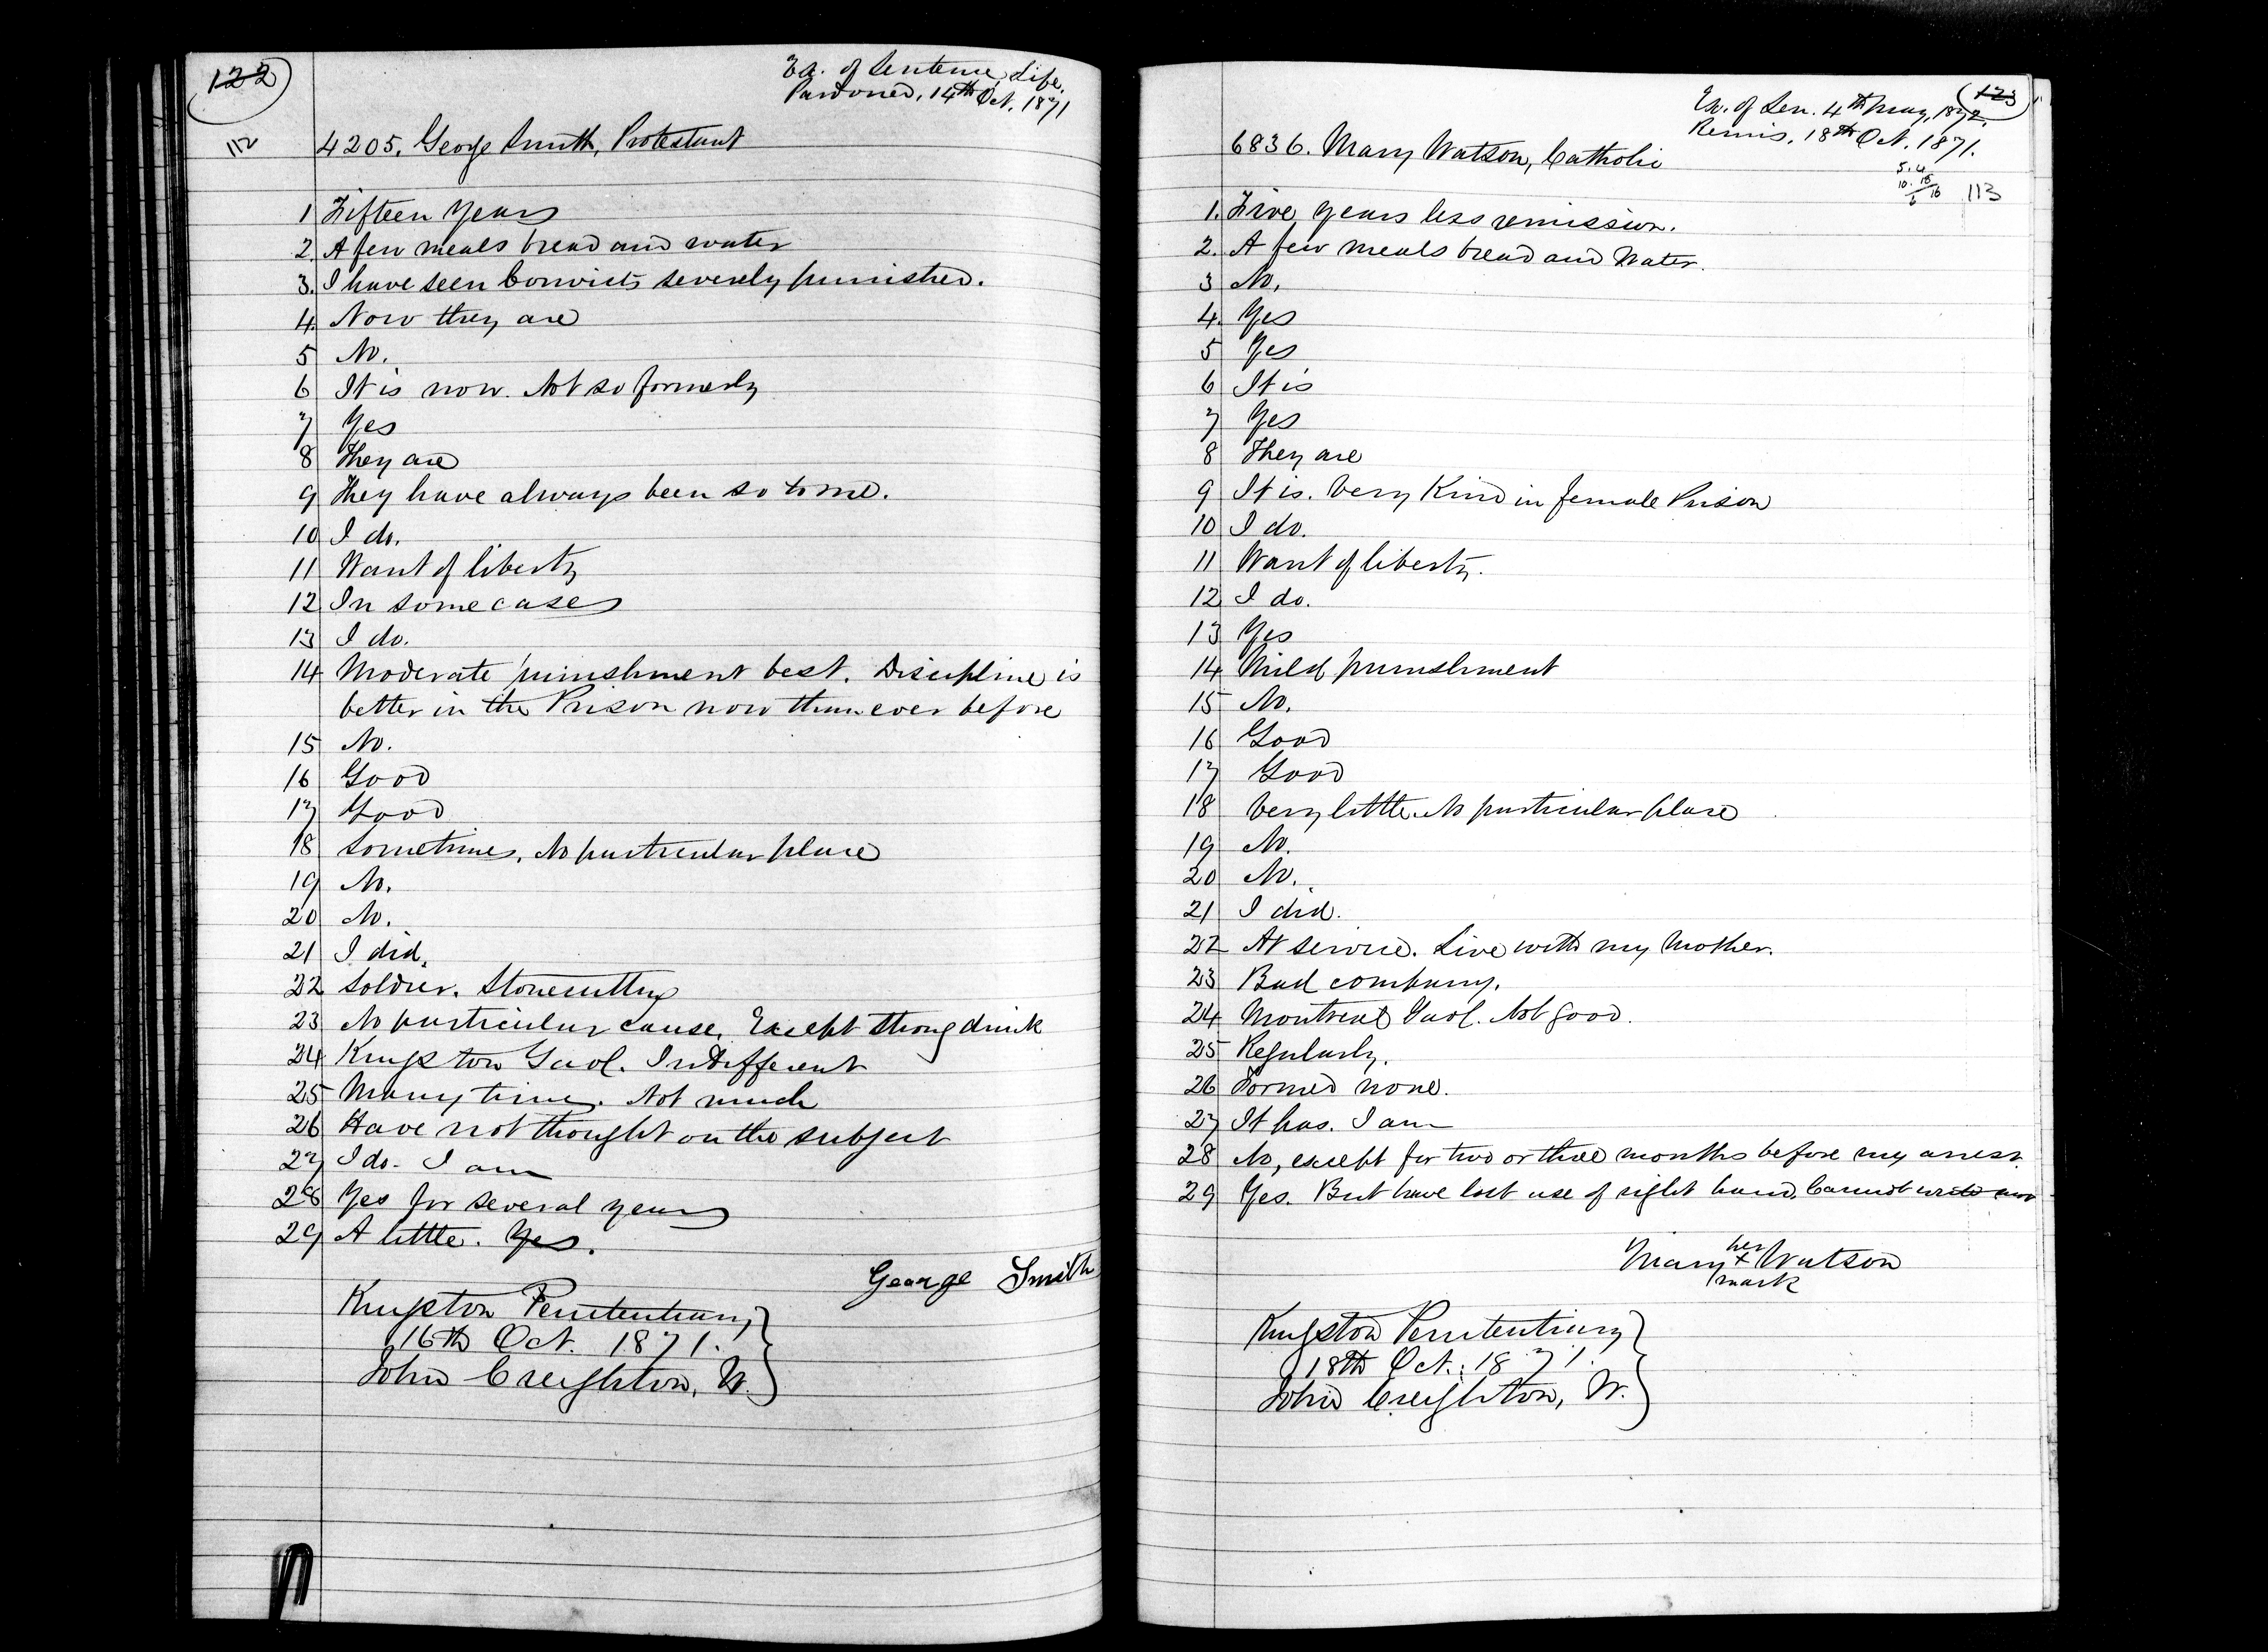 122
Ex. of Sentence, Life.
Pardoned, 14th Oct. 1871
112
4205. George Smith, Protestant
1 Fifteen Years
2. A few meals bread and water
3. I have seen Convicts severely punished.
4. Now they are
5 No.
6 It is now. Not so formerly
7 Yes
8 They are
9 They have always been so to me.
10 I do.
11 Want of liberty
12 In some cases
13 I do.
14 Moderate punishment best. Discipline is
better in the Prison now than ever before
15 No.
16 Good
17 Good
18 Sometimes. No particular place
19 No.
20 No.
21 I did.
22 Soldier. Stonecutting
23 No particular cause. Except strong drink
24 Kingston Gaol. Indifferent
25 Many times. Not much
26 Have not thought on the subject
27 I do. I am
28 Yes for several years
29 A little. Yes.
George Smith
Kingston Penitentiary,
16th Oct. 1871.
John Creighton, W.
123
Ex. of Sen. 4th May, 1872.
Remis. 18th Oct. 1871.
6836. Mary Watson, Catholic
5.4
10.18
6 16
113
1. Five years less remission.
2. A few meals bread and Water.
3 No.
4. Yes
5 Yes
6 It is
7 Yes
8 They are
9 It is. Very Kind in female Prison
10 I do.
11 Want of liberty.
12 I do.
13 Yes
14 Mild punishment
15 No.
16 Good
17 Good
18 Very little. No particular place
19 No.
20 No.
21 I did.
22 At service. Live with my Mother.
23 Bad company.
24 Montreal Gaol. Not good.
25 Regularly.
26 Formed none.
27 It has. I am
28 No, except for two or three months before my arrest.
29 Yes. But have lost use of right hand. Cannot write now
her
Mary x Watson
mark
Kingston Penitentiary
18th Oct. 1871.
John Creighton, W.